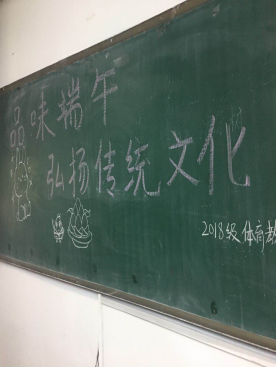 品味端午
弘扬传统文化
2018级体育教